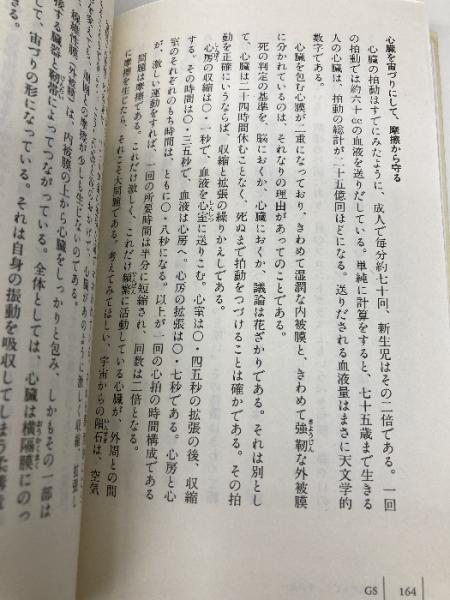 心臓を宙づりにして、摩擦から守る
心臓の拍動はすでにみたように、成人で毎分約七十回、新生児はその二倍である。一回
の拍動では約六十ccの血液を送りだしている。単純に計算をすると、七十五歳まで生きる
人の心臓は、拍動の総計が二十五億回ほどになる。送りだされる血液量はまさに天文学的
数字である。
心臓を包む心膜が二重になっており、きわめて湿潤な内被膜と、きわめて強靭な外被膜
きょうじん
に分かれているのは、それなりの理由があってのことである。
死の判定の基準を、脳におくか、心臓におくか、議論は花ざかりである。それは別とし
て、心臓は二十四時間休むことなく、死ぬまで拍動をつづけることは確かである。その拍
動を正確にいうならば、収縮と拡張の繰りかえしである。
心房の収縮は〇・一秒で、血液を心室に送りこむ。心室は〇・四五秒の拡張の後、収縮
する。その時間は〇・三五秒で、血液は心房へ。心房の拡張は〇・七秒である。心房と心
室のそれぞれのもち時間は、ともに〇・八秒になる。以上が一回の心拍の時間構成である
が、激しい運動をすれば、一回の所要時間は半分に短縮され、回数は二倍となる。
問題は摩擦である。これだけ激しく、これだけ頻繁に活動している心臓が、外周との間
に摩擦を生じたら、それこそ大問題である。考えてみてほしい、宇宙からの隕石は、空気
いんせき
が少しも生じないのである。
、内被膜の上から心臓をしっかりと包み、しかもその一部は
接する臓器と靭帯によってつながっている。全体としては、心臓は横隔膜にのっ
じんたい
おうかくまく
して、宙づりの形になっている。それは自身の振動を吸収してしまう
GS
164